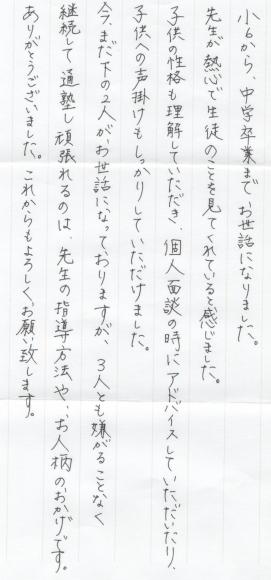 小6から、中学卒業まで、お世話になりました。
先生が熱心で生徒のことを見てくれていると感じました。
子供の性格も理解していただき、個人面談の時にアドバイスしていただいたり、
子供への声掛けもしっかりしていただけました。
今、まだ下の2人が、お世話になっておりますが、3人とも嫌がることなく
継続して通塾し頑張れるのは、先生の指導方法や、お人柄のおかげです。
ありがとうございました。これからもよろしく、お願い致します。